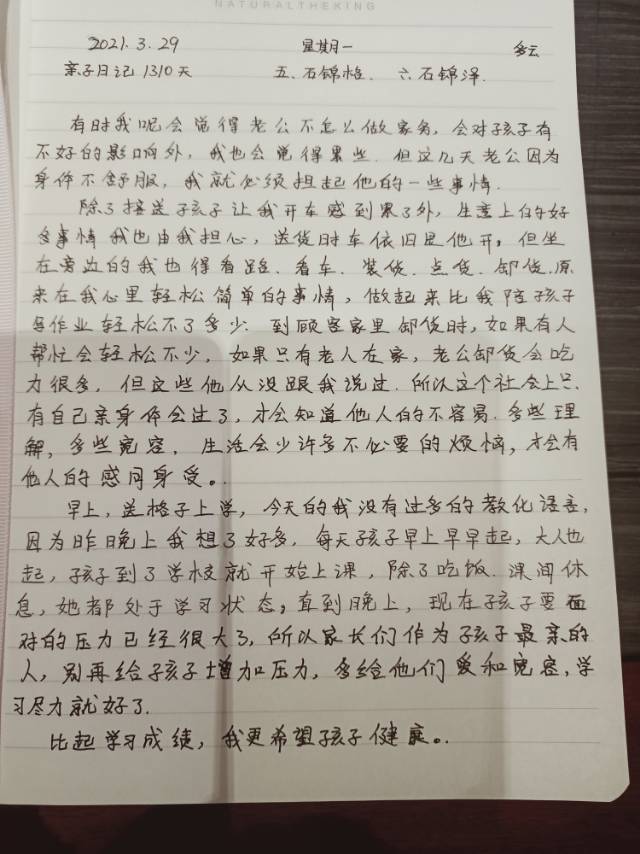 NATURALTHEKING
2021.3.29 星期一 多云
亲子日记1310天 五.石锦格. 六石锦泽.
有时我呢会觉得老公不怎么做家务，会对孩子有
不好的影响外，我也会觉得累些.但这几天老公因为
身体不舒服，我就必须担起他的一些事情.
除了接送孩子让我开车感到累了外，生意上的好
多事情我也由我担心，送货时车依旧是他开，但坐
在旁边的我也得看路.看车.装货.点货.卸货.原
来在我心里轻松简单的事情，做起来比我陪孩子
写作业轻松不了多少.到顾客家里卸货时，如果有人
帮忙会轻松不少，如果只有老人在家，老公卸货会吃
力很多，但这些他从没跟我说过.所以这个社会上只
有自己亲身体会过了，才会知道他人的不容易.多些理
解，多些宽容，生活会少许多不必要的烦恼，才会有
他人的感同身受。.
早上，送格子上学，今天的我没有过多的教化语言，
因为昨晚上我想了好多，每天孩子早上早早起，大人也
起，孩子到了学校就开始上课，除了吃饭.课间休
息，她都处于学习状态，直到晚上，现在孩子要面
对的压力已经很大了，所以家长们作为孩子最亲的
人，别再给孩子增加压力，多给他们爱和宽容，学
习尽力就好了.
比起学习成绩，我更希望孩子健康。.